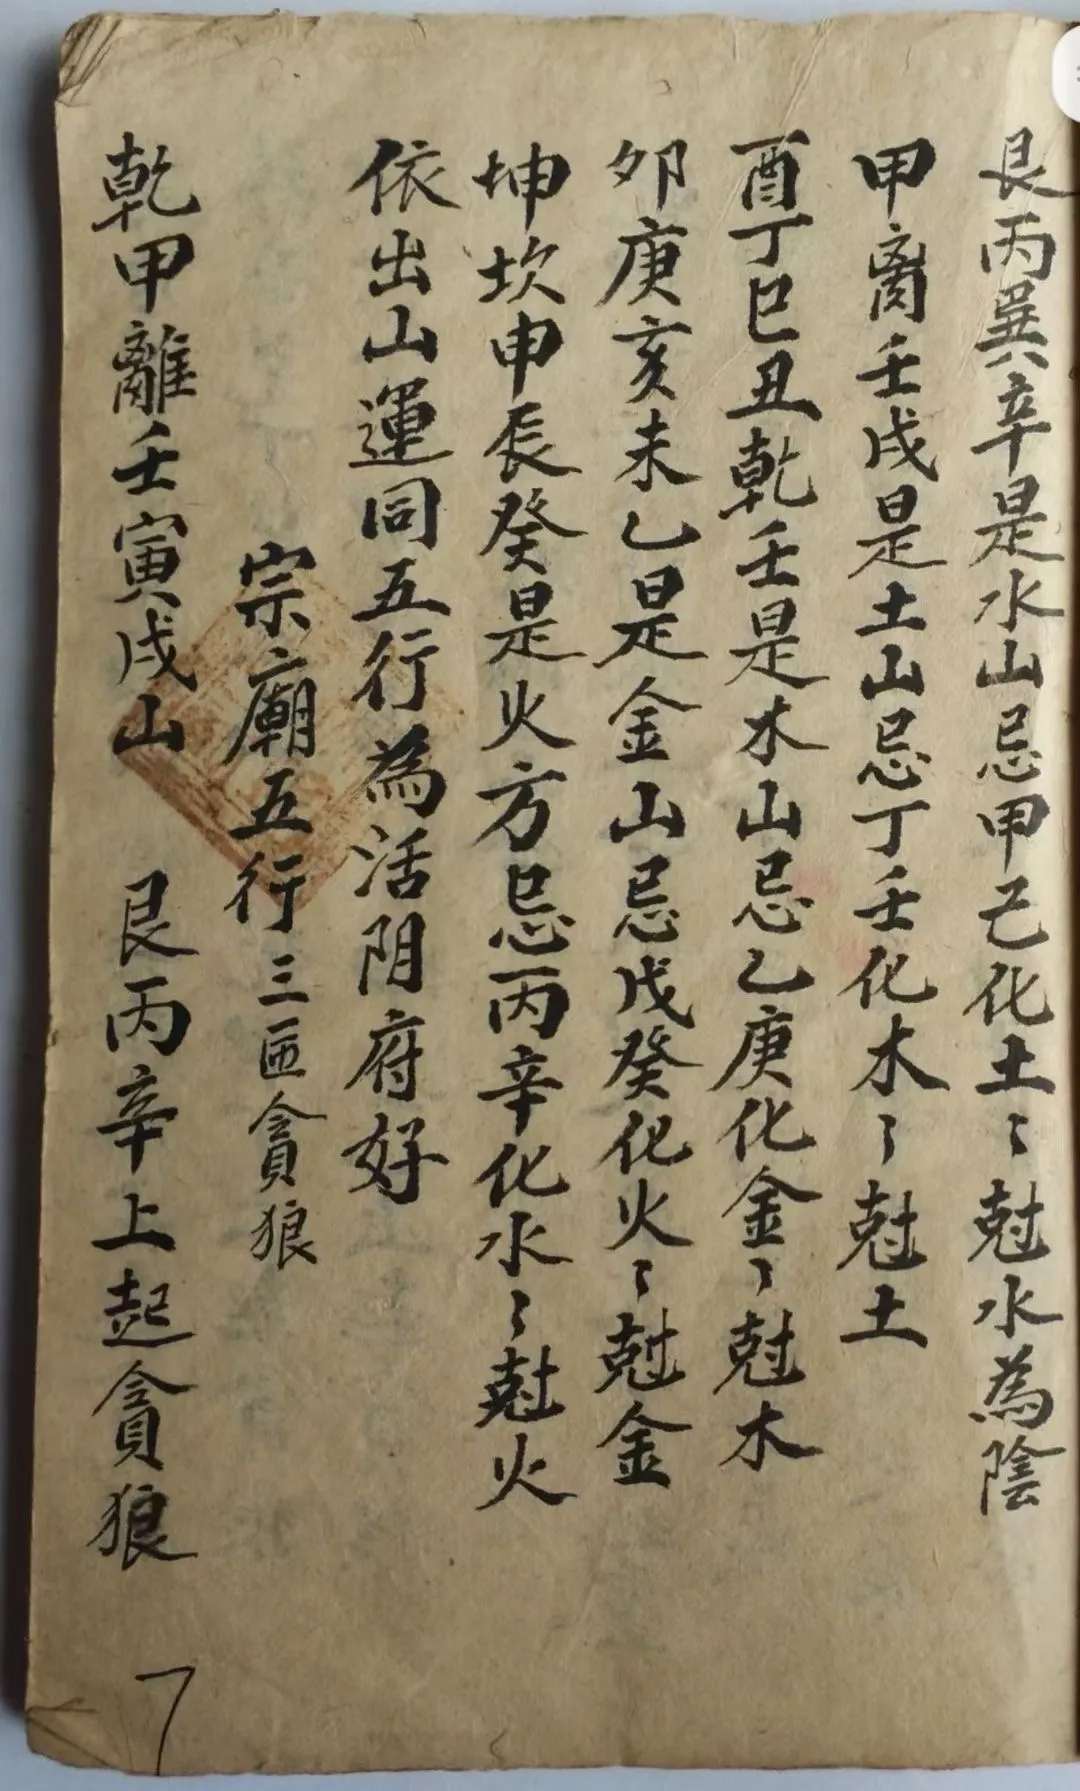 艮丙巽辛是水山忌甲己化土〻尅水為陰
甲离壬戌是土山忌丁壬化木〻尅土
酉丁巳丑乾壬是木山忌乙庚化金〻尅木
夘庚亥未乙是金山忌戊癸化火〻尅金
坤坎申辰癸是火方忌丙辛化水〻尅火
依出山運同五行為活阴府好
宗廟五行三匝貪狼
乾甲離壬寅戌山 艮丙辛上起貪狼
7